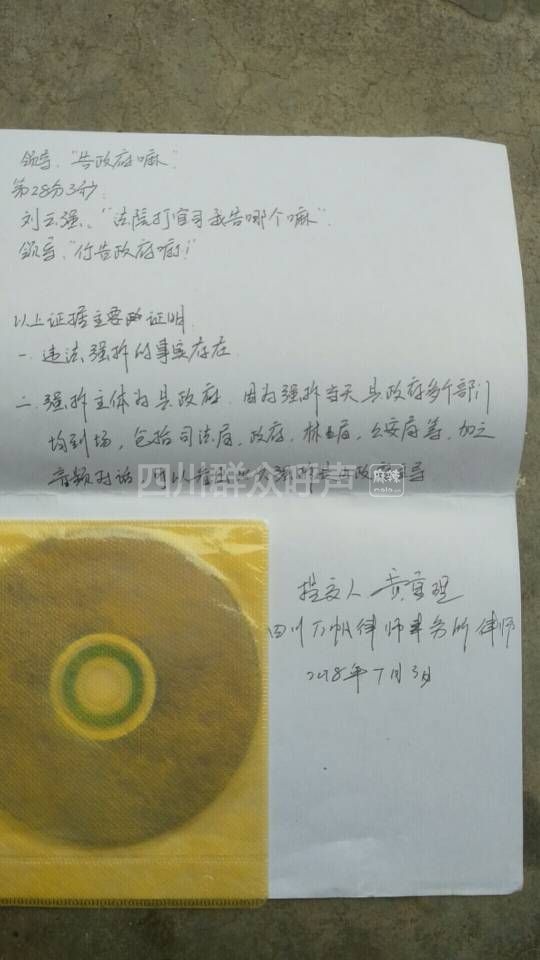 领导："告政府嘛"
第28分3秒：
刘玉强："法院打官司我告哪个嘛"
领导："你告政府嘛！"
以上证据主要证明
一、违法强拆的事实存在
二、强拆主体为县政府，因为强拆当天县政府多个部门
均到场，包括司法局、政府、林业局、公安局等，加之
音频对话，可以看出此次强拆
四川群众呼声
麻辣
mala.cn
提交人
四川万帆律师事务所律师
2018年7月3日